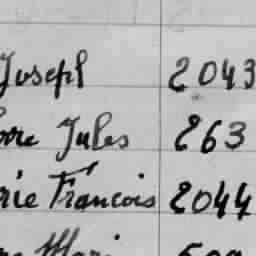 Joseph 2043
Jules 263
rie Francois 2044